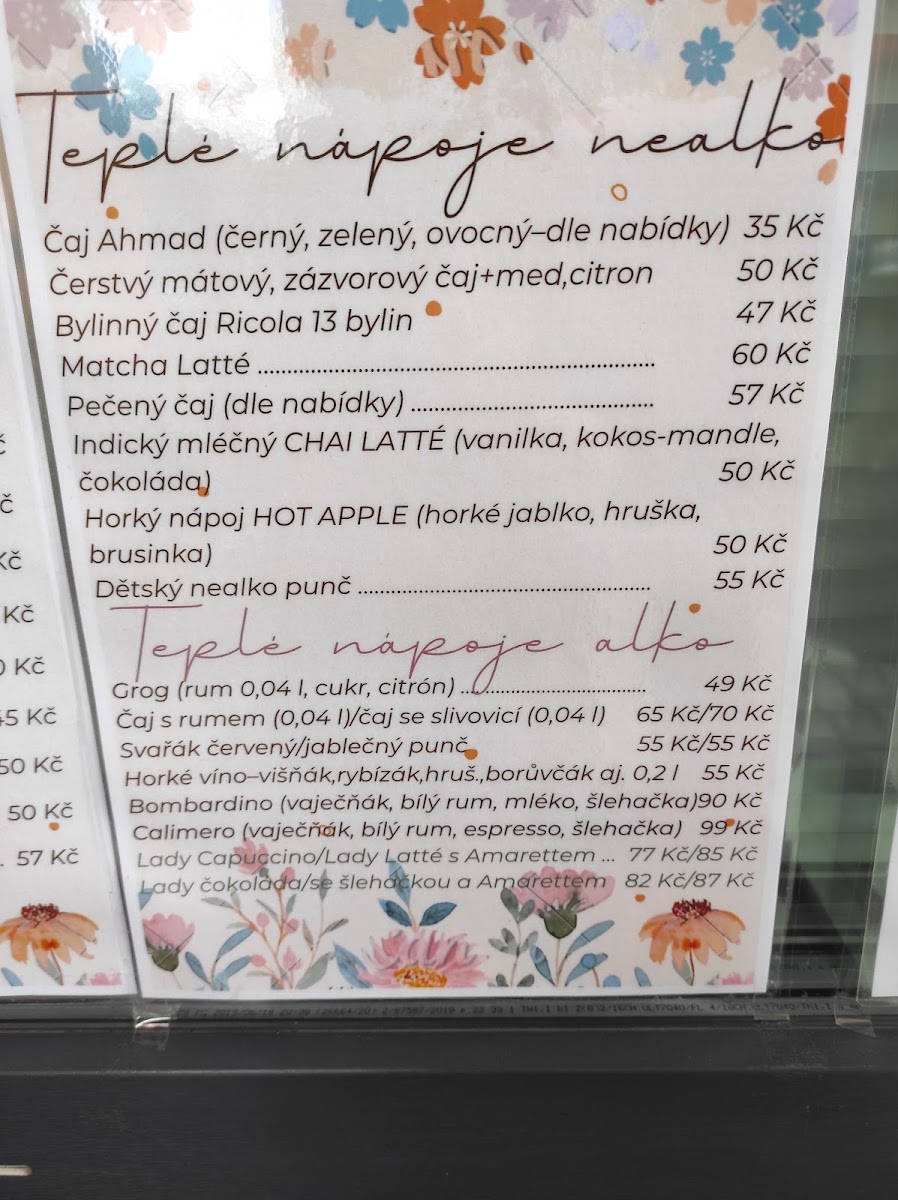 Teplé nápoje nealko
Čaj Ahmad (černý, zelený, ovocný–dle nabídky) 35 Kč
Čerstvý mátový, zázvorový čaj+med,citron 50 Kč
Bylinný čaj Ricola 13 bylin 47 Kč
Matcha Latté ........................................................ 60 Kč
Pečený čaj (dle nabídky) ................................... 57 Kč
Indický mléčný CHAI LATTÉ (vanilka, kokos-mandle,
čokoláda) 50 Kč
Horký nápoj HOT APPLE (horké jablko, hruška,
brusinka) 50 Kč
Dětský nealko punč .......................................... 55 Kč
Teplé nápoje alko
Grog (rum 0,04 l, cukr, citrón) ............................ 49 Kč
Čaj s rumem (0,04 l)/čaj se slivovicí (0,04 l) 65 Kč/70 Kč
Svařák červený/jablečný punč 55 Kč/55 Kč
Horké víno–višňák,rybízák,hruš.,borůvčák aj. 0,2 l 55 Kč
Bombardino (vaječňák, bílý rum, mléko, šlehačka)90 Kč
Calimero (vaječňák, bílý rum, espresso, šlehačka) 99 Kč
Lady Capuccino/Lady Latté s Amarettem ... 77 Kč/85 Kč
Lady čokoláda/se šlehačkou a Amarettem 82 Kč/87 Kč
č
č
Kč
Kč
0 Kč
45 Kč
50 Kč
50 Kč
. 57 Kč